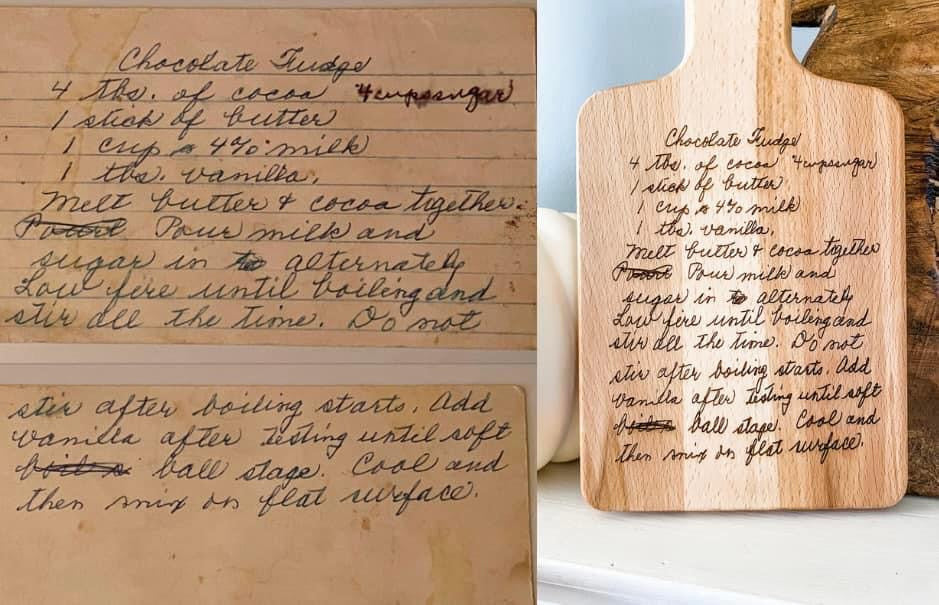 Chocolate Fudge
4 tbs. of cocoa 4 cups sugar
1 stick of butter
1 cup 4% milk
1 tbs. vanilla.
Melt butter & cocoa together.
Pour milk and
sugar in alternately
Low fire until boiling and
stir all the time. Do not
stir after boiling starts. Add
vanilla after testing until soft
ball stage. Cool and
then mix on flat surface.
Chocolate Fudge
4 tbs. of cocoa 4 cups sugar
1 stick of butter
1 cup 4% milk
1 tbs. vanilla.
Melt butter & cocoa together
Pour milk and
sugar in alternately
Low fire until boiling and
stir all the time. Do not
stir after boiling starts. Add
vanilla after testing until soft
ball stage. Cool and
then mix on flat surface.